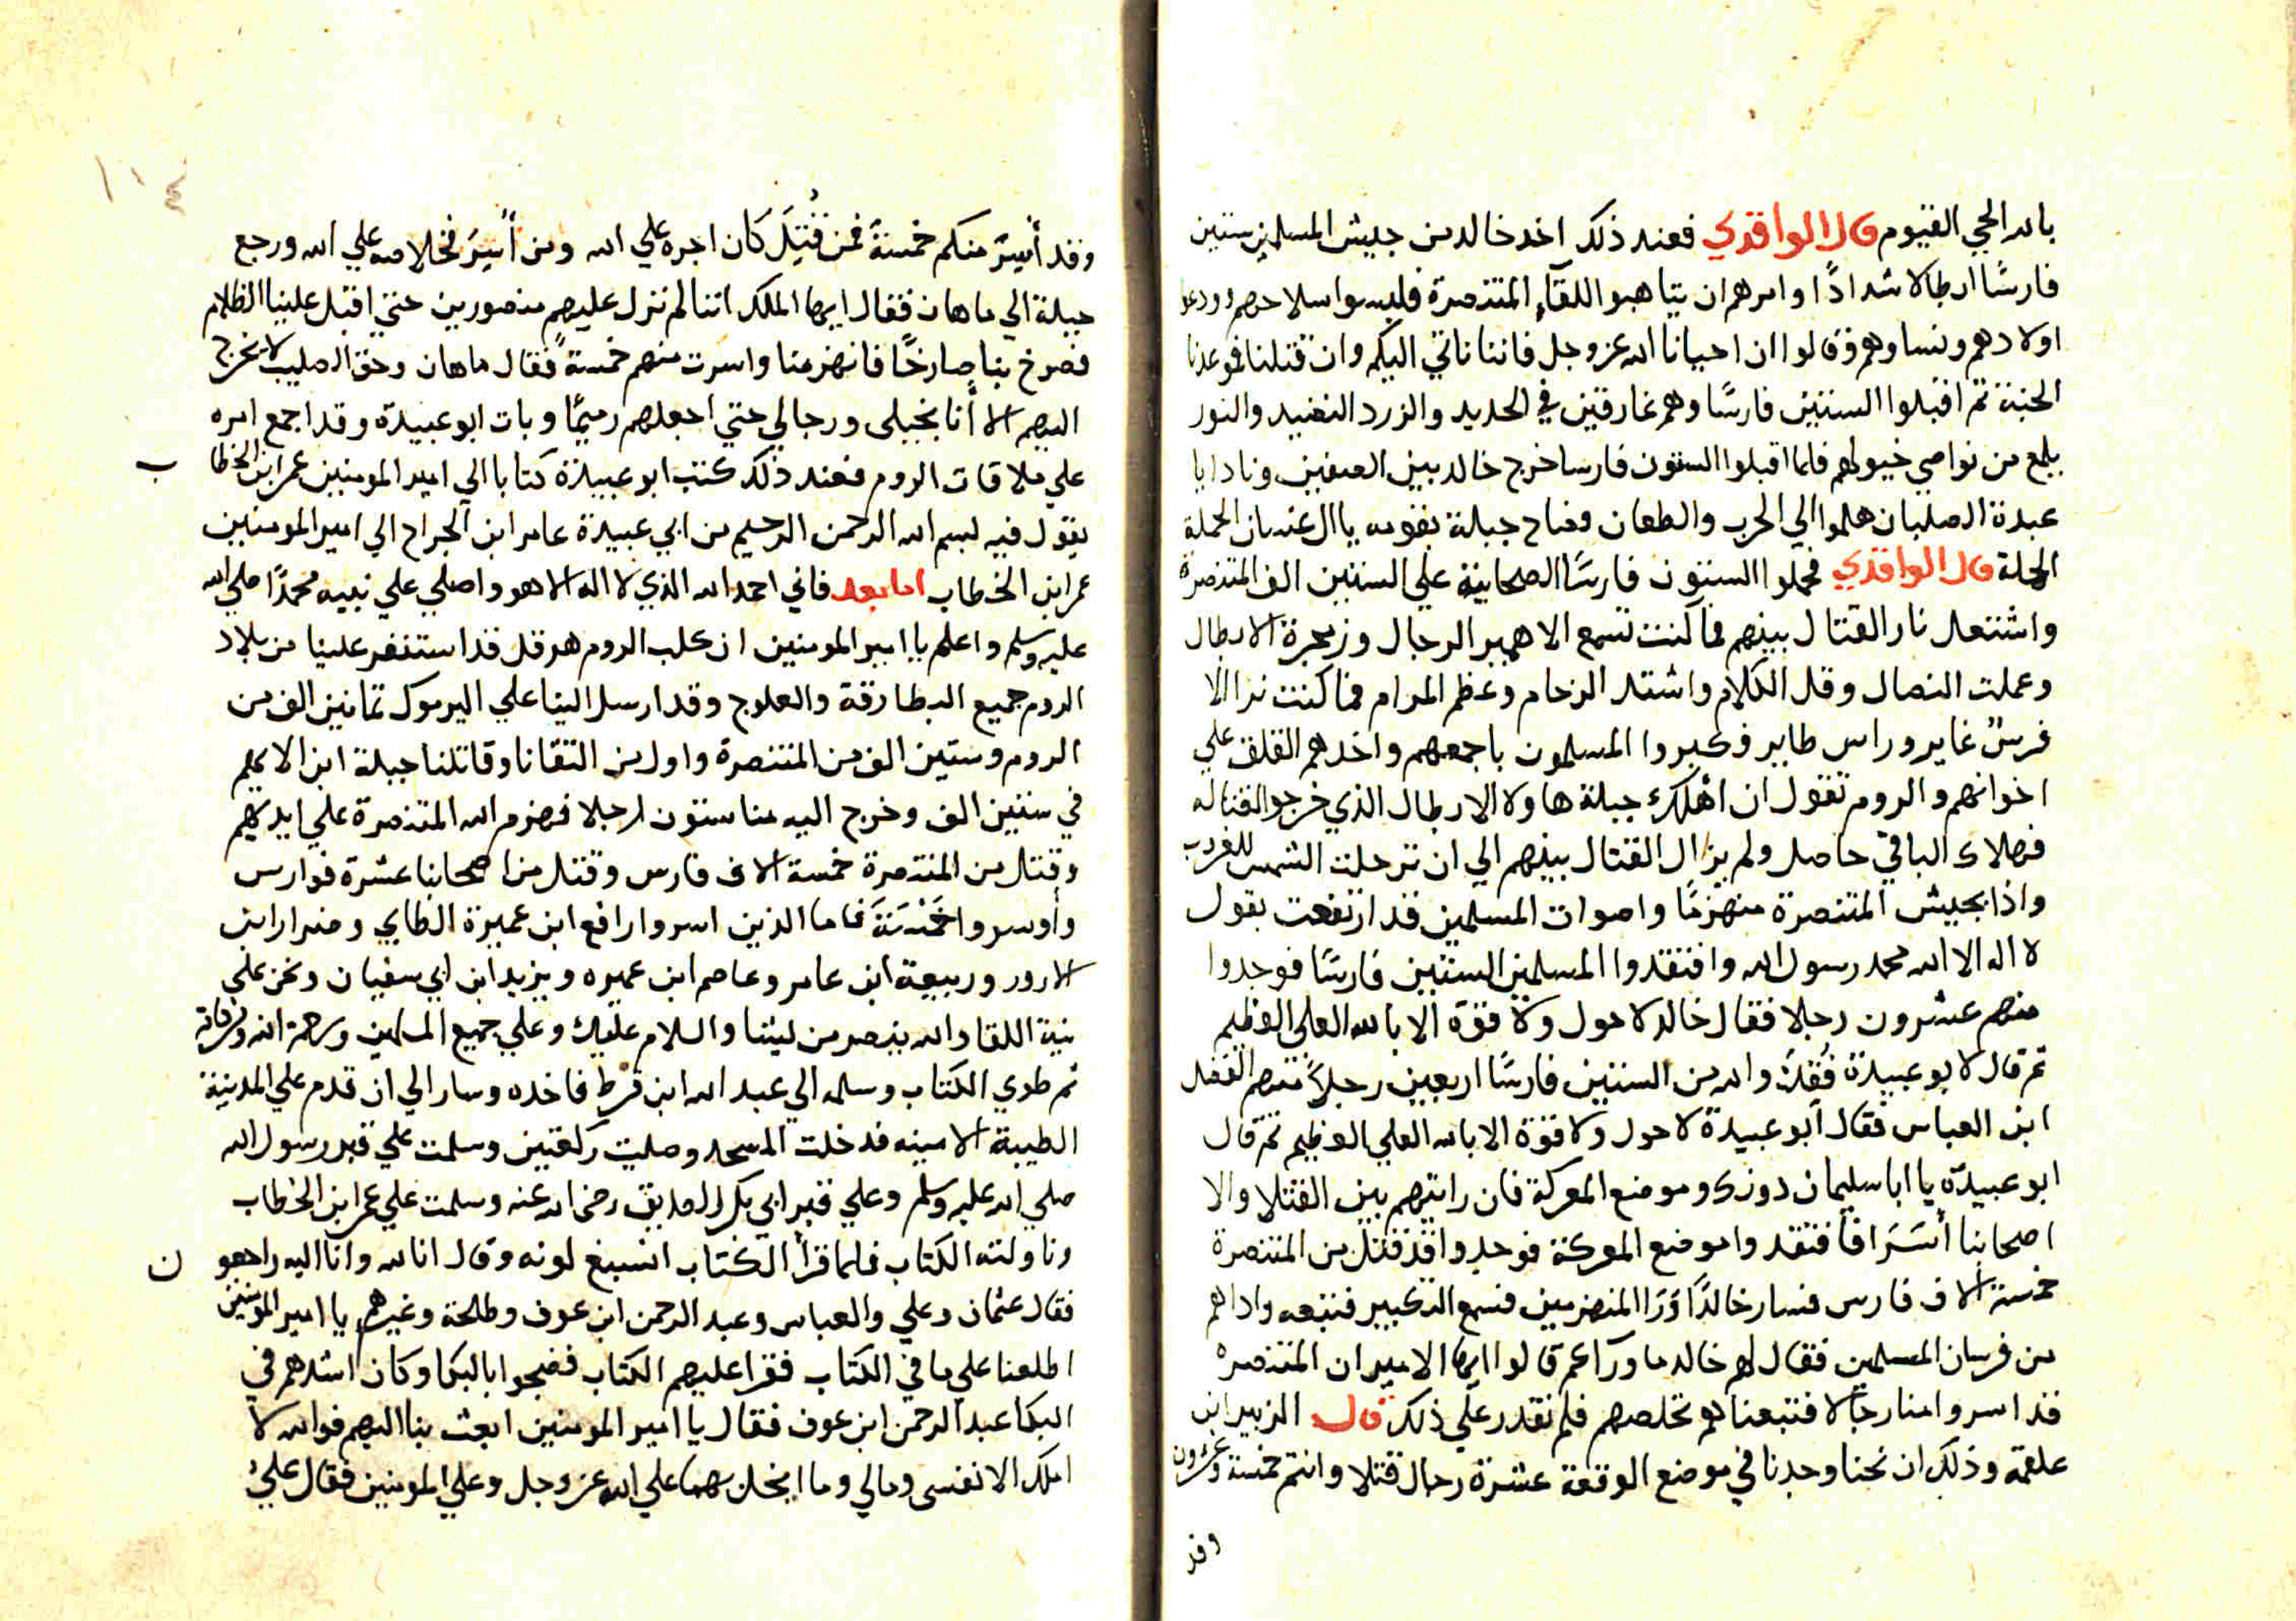 بالله الحي القيوم قال الواقدي فعند ذلك اخد خالد من جيش المسلمين ستين
فارسًا ابطالا شدادًا وامرهم ان يتاهبوا اللقآء المتنصرة فلبسوا سلاحهم وودعوا
اولادهم ونساوهم وقالوا ان احيانا الله عز وجل فاننا ناتي اليكم وان قتلنا فموعدنا
الجنة ثم اقبلوا الستين فارسًا وهم غارقين في الحديد والزرد النضيد والنور
يلمع من نواصي خيولهم فلما اقبلوا الستون فارسا خرج خالد بين الصفين ونادا يا
عبدة الصلبان هلموا الي الحرب والطعان وصاح جبلة بقومه يا ال غسان الحملة
الحملة قال الواقدي فحملوا الستون فارسًا الصحابية علي الستين الف المتنصرة
واشتعل نار القتال بينهم فما كنت تسمع الا همير الرجال وزمجرة الابطال
وعملت النصال وقل الكلام واشتد الزحام وعظم المرام فما كنت ترا الا
فرسٌ غاير وراس طاير وكبروا المسلمون باجمعهم واخدهم القلق علي
اخوانهم والروم تقول ان اهلك جبلة هاولا الابطال الذي خرجوا لقتاله
فهلاك الباقي حاصل ولم يزال القتال بينهم الي ان ترحلت الشمس للغروب
واذا بجيش المتنصرة منهزمًا واصوات المسلمين قد ارتفعت بقول
لا اله الا الله محمد رسول الله وافتقدوا المسلمين الستين فارسًا فوجدوا
منهم عشرون رجلا فقال خالد لا حول ولا قوة الا بالله العلي العظيم
ثم قال لابو عبيدة فُقِدَ والله من الستين فارسًا اربعين رجلاً منهم الفضل
ابن العباس فقال ابو عبيدة لا حول ولا قوة الا بالله العلي العظيم ثم قال
ابو عبيدة يا ابا سليمان دونك وموضع المعركة فان رايتهم بين القتلا والا
اصحابنا أسَرَا فافتقدوا موضع المعركة فوجدوا قد قتل من المتنصرة
خمسة الاف فارس فسار خالدًا وَرَا المنهزمين فسمع التكبير فتبعه واذا هم
من فرسان المسلمين فقال لهم خالد ما ورآكم قالوا ايها الامير ان المتنصره
قد اسروا منا رجالا فتبعناهم نخلصهم فلم نقدر علي ذلك قال الزبير ابن
علقمة وذلك ان نحنا وجدنا في موضع الوقعة عشرة رجال قتلا وانتم خمسة وعشرون
وقد
١٠٤
وقد أُسِرَ منكم خمسةً فمن قُتِلَ كان اجره علي الله ومن أُسِرَ فخلاصه علي الله ورجع
جبلة الي ماهان فقال ايها الملك اننا لم نزل عليهم منصورين حتي اقبل علينا الظلام
فصرخ بنا صارخًا فانهزمنا واسرت منهم خمسةً فقال ماهان وحق الصليب لا يخرج
اليهم الا أنا بخيلي ورجالي حتي اجعلهم رميمًا وبات ابو عبيدة وقد اجمع امره
علي ملاقات الروم فعند ذلك كتب ابو عبيدة كتابا الي امير المومنين عمر ابن الخطا
ب
يقول فيه بسم الله الرحمن الرحيم من ابي عبيدة عامر ابن الجراح الي امير المومنين
عمر ابن الخطاب اما بعد فاني احمد الله الذي لا اله الا هو واصلي علي نبيه محمدًا صلي الله
عليه وسلم واعلم يا امير المومنين ان كلب الروم هرقل قد استنفر علينا من بلاد
الروم جميع البطارقة والعلوج وقد ارسل الينا علي اليرموك تمانين الف من
الروم وستين الف من المتنصرة واول من التقانا وقاتلنا جبلة ابن الايهم
في ستين الف وخرج اليه منا ستون رجلا فهزم الله المتنصرة علي ايديهم
وقتل من المتنصرة خمسة الاف فارس وقتل من اصحابنا عشرة فوارس
وأوسروا خَمْسَةَ فاما الذين اسروا رافع ابن عميرة الطاي وضرار ابن
الازور وربيعة ابن عامر وعاصم ابن عميره ويزيد ابن ابي سفيان ونحن علي
نية اللقا والله ينصر من يشا والسلام عليك وعلي جميع المسلمين ورحمة الله وبركاته
ثم طوي الكتاب وسلمه الي عبد الله ابن قرط فاخده وسار الي ان قدم علي المدينة
الطيبة الامينه فدخلت المسجد وصليت ركعتين وسلمت علي قبر رسول الله
صلي الله عليه وسلم وعلي قبر ابي بكر الصديق رضي الله عنه وسلمت علي عمر ابن الخطاب
وناولته الكتاب فلما قرأ الكتاب انسبغ لونه وقال انا لله وانا اليه راجعو
ن
فقال عثمان وعلي والعباس وعبد الرحمن ابن عوف وطلحة وغيرهم يا امير المومنين
اطلعنا علي ما في الكتاب فقرا عليهم الكتاب فضجوا بالبكا وكان اشدهم في
البكا عبد الرحمن ابن عوف فقال يا امير المومنين ابعث بنا اليهم فوالله لا
املك الا نفسي ومالي وما ابخل بهما علي الله عز وجل وعلي المومنين فقال عليُ